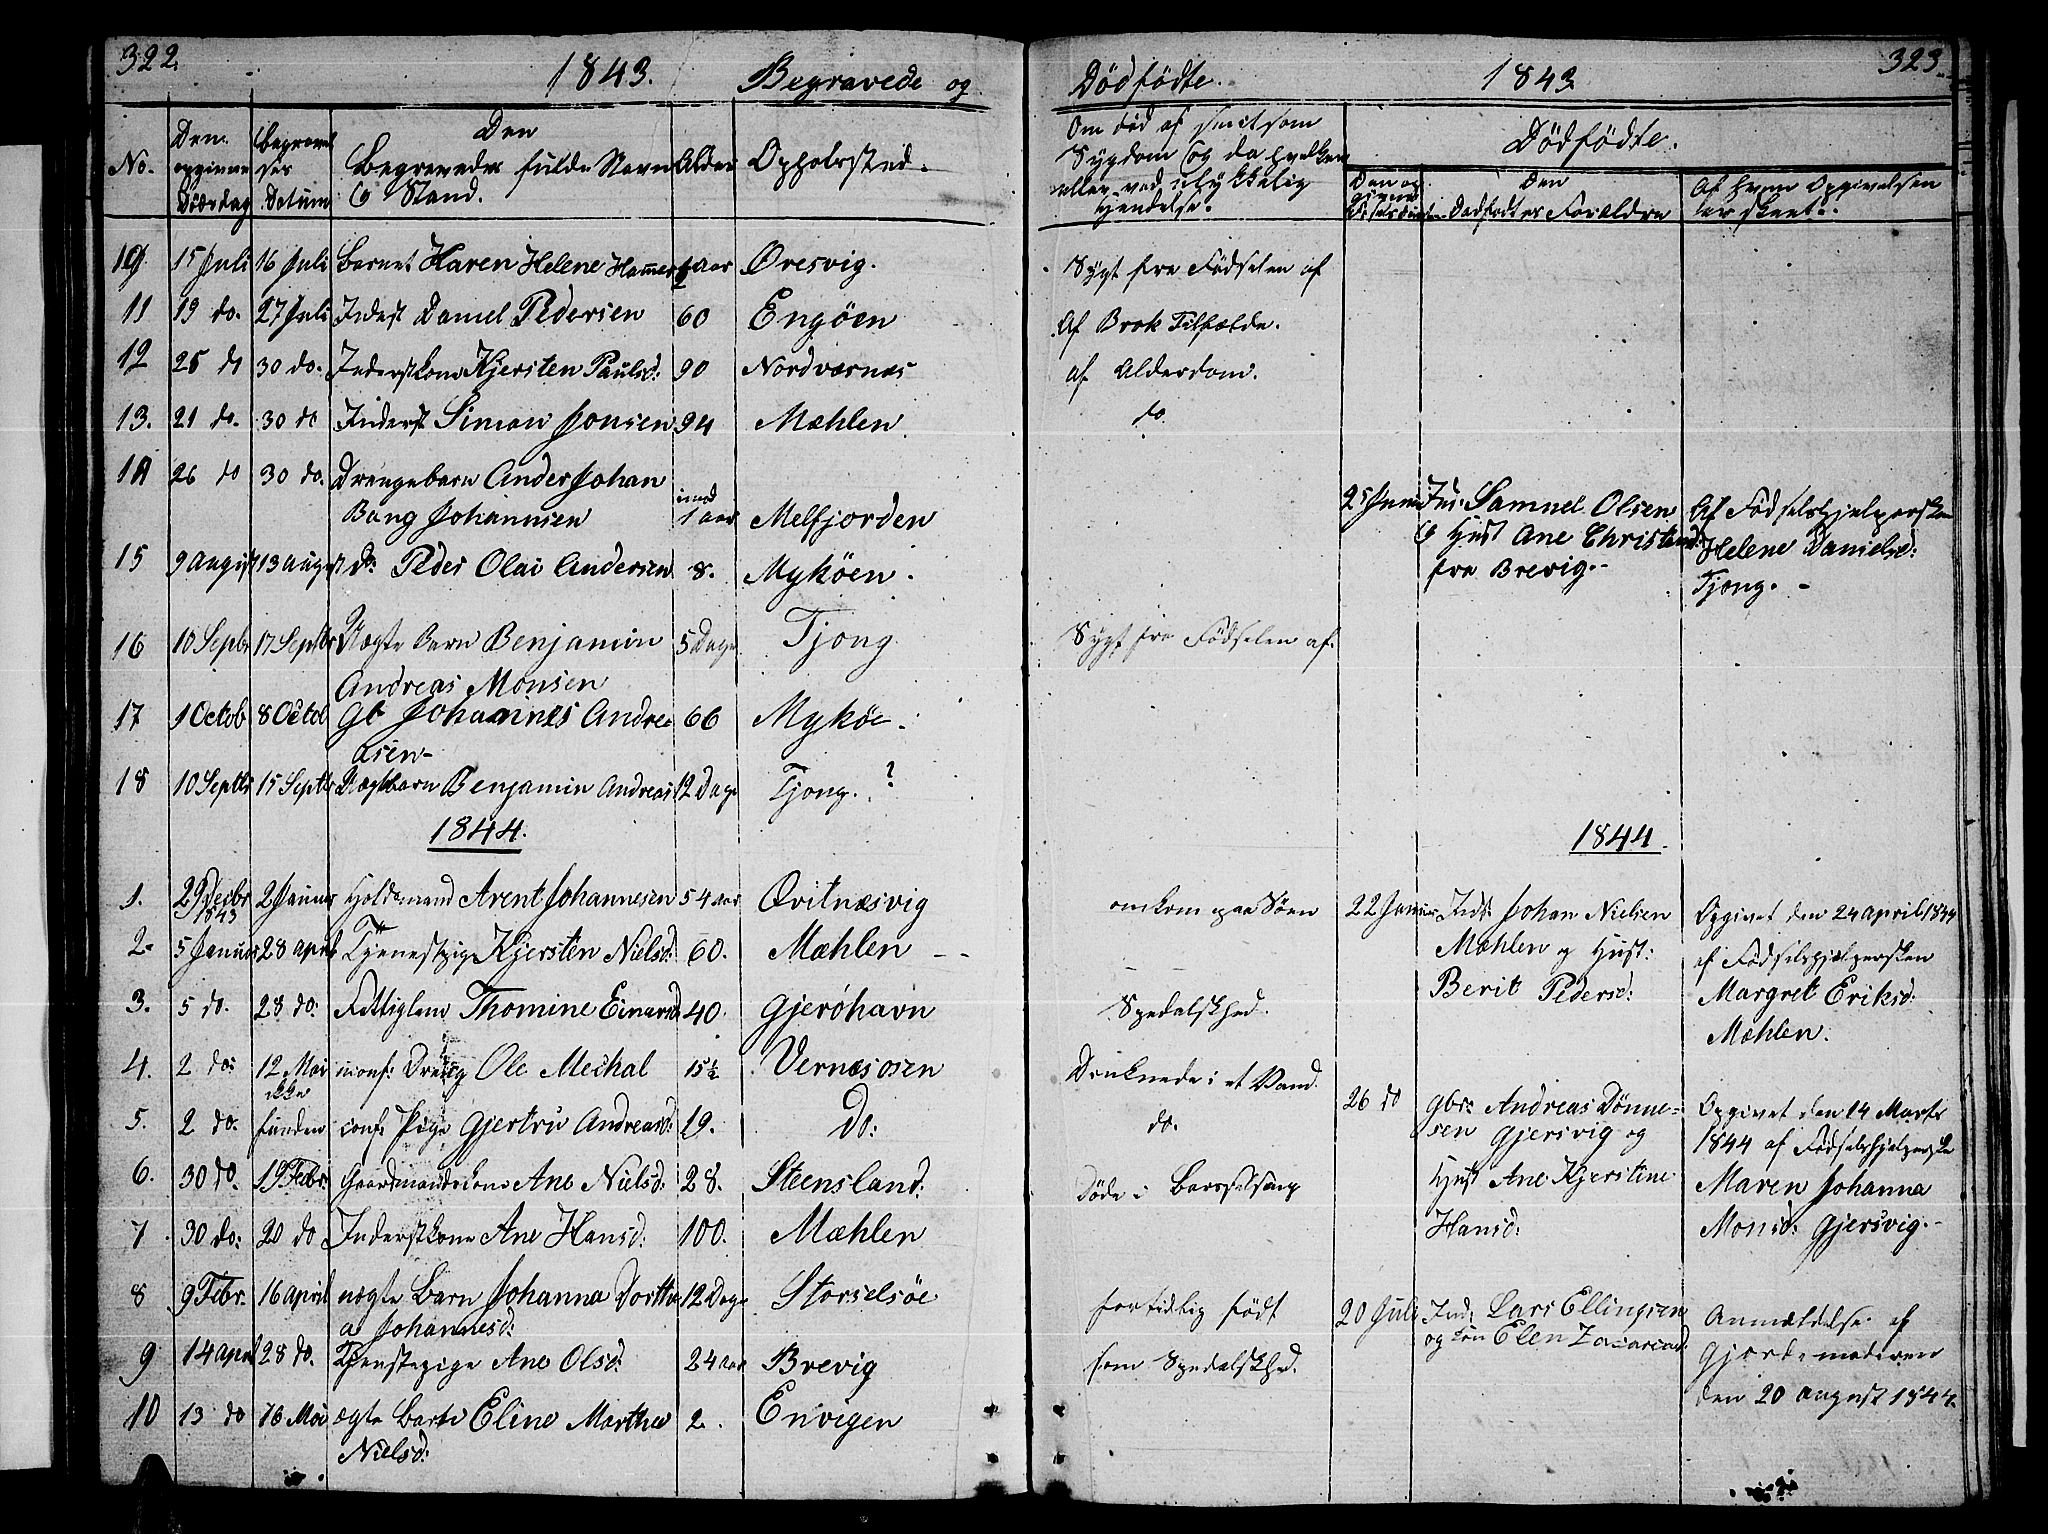 322.
1843. Begravede og
No.
Den opgivne Dödsdag
Begravelses Datum
Den Begravedes fulde Navn & Stand.
Alder
Opholdssted.
10 15 Juli 16 Juli Barnet Karen Helene Hammer ½ aar Øresvig.
11 19 do. 27 Juli Inderst Daniel Pedersen 60 Engöen
12 25 do 30 do. Inderstkone Kjersten Paulsd: 90 Nordværnæs
13. 21 do. 30 do Inderst Simon Jonsen 94 Mæhlen
14 26 do 30 do. Drengebarn Ander Johan
Bang Johannsen imod 1 aar Melfjorden
15 9 august 13 august do: Peder Olai Andersen 8. Myköen.
16 10 Septbr 17 Septbr Uægte Barn Benjamin 5 Dage Tjong
Andreas Monsen
17 1 Octob 8 Octob Gb Johannes Andrea 66 Myköe.
asen-
18 10 Septbr 15 Septbr Uægtebarn Benjamin Andreas 12 Dage Tjong. ?
1844.
1. 29 Decbr 1843 2 Januar Holdsmand Arent Johannesen 54 aar Qvitnæsvig
2. 5 Januar 28 april Tjenestpige Kjersten Nielsd: 60. Mæhlen - -
3. 5 do. 28 do: Fattiglem Thomine Einarsd 40. Gjeröhavn
4. 2 do: 12 Mai conf: Dreng Ole Mechal 15½ Vernæsosen
5. 2 do. ikke funden conf: Pige Gjertru Andreasd: 19. Do:
6. 30 do. 19 Febr: Gaardmandskone Ane Nielsd: 28. Steensland.
7. 30 do: 20 do Inderstkone Ane Hansd: 100. Mæhlen
8 9 Febr. 16 april uægte Barn Johanna Dorthe 12 Dage Storselsöe
a Johannesd:
9 14 april 28 do. Tjenstepige Ane Olsd: 24 aar Brevig
10 13 do 16 Mai ægte Barn Eline Martha 2. Envigen
Nielsd:
323.
Dödfödte. 1843
Om död af smitsom
Sygdom (og da hvilken
eller ved ulykkelig
Hendelse.
Dödfödte.
Den Dödfödtes Forældre
Af hvem Opgivelsen
er skeet.
Sygt fra Födselen af
Af Brok Tilfælde.
af Alderdom.
do.
25 Juni Ind: Samuel Olsen
& Hust Ane Christensd:
fra Brevig.-
Af Födselshjelpersken
Helene Danielsd:
Tjong. -
Sygt fra Födselen af.
1844.
omkom paa Söen
22 Januar Inds: Johan Nielsen
Mæhlen og Hust:
Berit Pedersd:
Opgivet den 24 april 1844
af Födselshjelpersken
Margret Eriksd:
Mæhlen.
- -
Spedalskhed.
Druknede i et Vand.
do.
26 do Gbr: Andreas Dönne=
sen Gjersvig og
Hust Ane Kjerstine
Hansd:
Opgivet den 14 Marts
1844 af Födselshjelperske
Maren Johanna
Monsd: Gjersvig.-
Döde i Barselseng
fortidlig födt
20 Juli Ind: Lars Ellingsen
og Kon Elen Zacariasd:
Anmeldelse af
Gjordemoderen
den 20 august 1844.
som Spedalskhed.